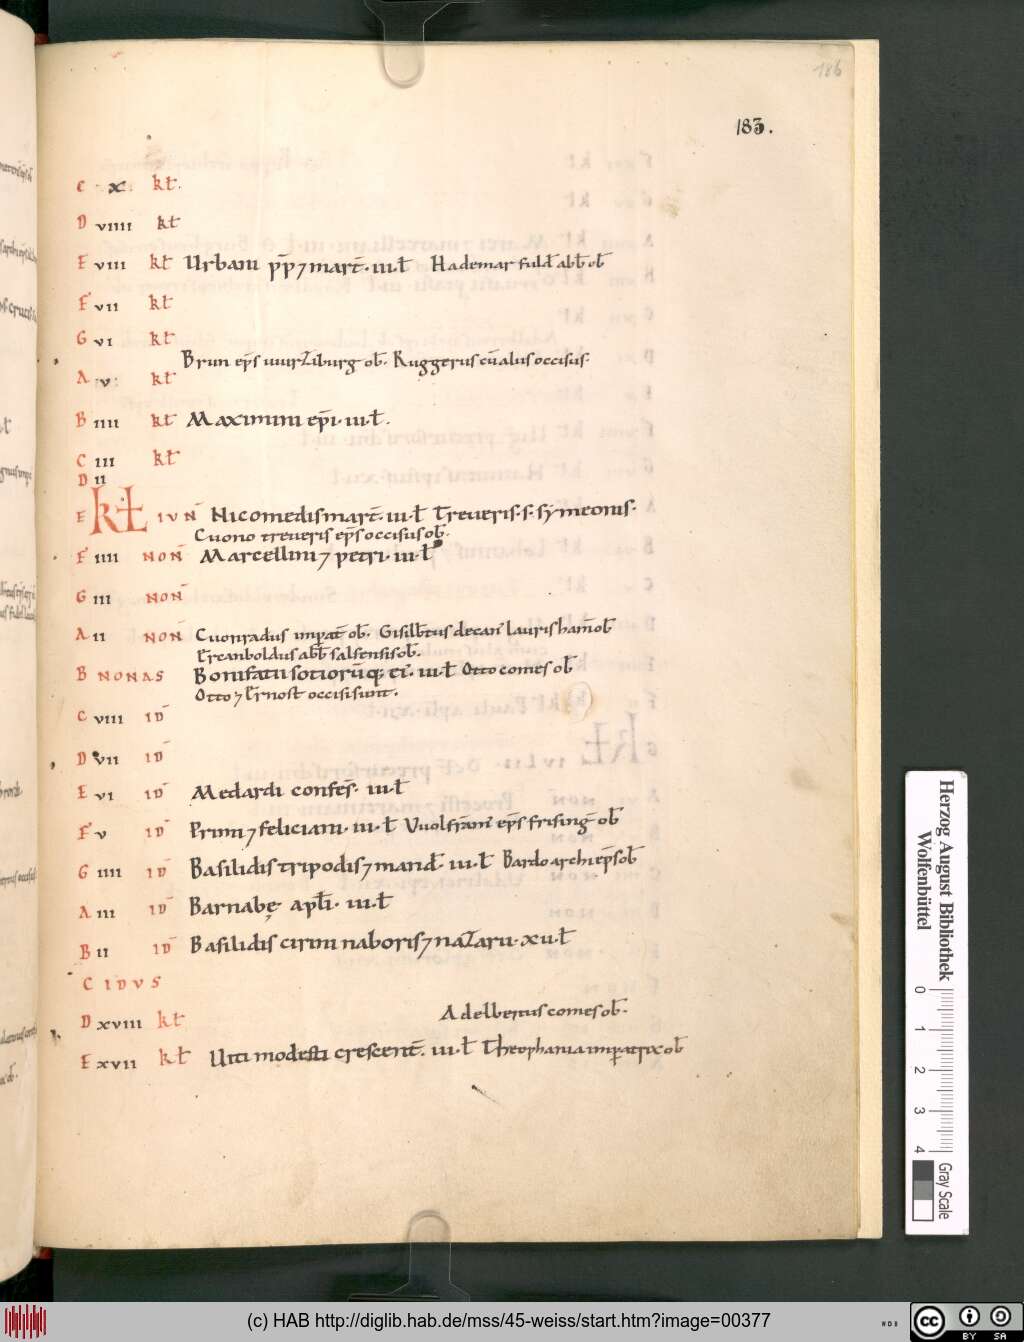 186
183.
C x kł.
D viiii kł
E viii kł Urbani p̄p ⁊ mar̄t. iii. ł Hademar fuld̄ abb̄ ob̄
F vii kł
G vi kł
Brun ep̄s uuirziburg ob̄. Ruggerus cūalus occisus.
A v kł
B iiii kł Maximini ep̄i. iii. ł.
C iii kł
D ii
E kł IUN̄ Nicomedis mar̄t. iii. ł Treueris. s. sÿmeonis.
Cuono treueris ep̄s occisus ob̄.
F iiii NON̄ Marcellini ⁊ petri. iii. ł
G iii NON̄
A ii NON̄ Cuonradus imperat̄ ob̄. Gisilb̄tus decan̄ laurisham̄ ob̄
Ercanboldus abb̄ salsensis ob̄.
B NONAS Bonifatii sotiorūq; ei'. iii. ł Otto comes ob̄
Otto ⁊ Ernost occisi sunt.
C viii ID̄
D vii ID̄
E vi ID̄ Medardi confes̄. iii. ł
F v ID̄ Primi ⁊ feliciani. iii. ł Vuolfram̄ ep̄s frisinḡ ob̄
G iiii ID̄ Basilidis tripodis ⁊ mand̄. iii. ł Bardo archiep̄s ob̄
A iii ID̄ Barnabę apłi. iii. ł
B ii ID̄ Basilidis cirini naboris ⁊ nazarii. xu. ł
C IDVS
D xviii kł Adelbertus comes ob̄.
E xvii kł Uiti modesti crescent̄. iii. ł Theophania imperatrix ob̄
Herzog August Bibliothek
Wolfenbüttel
0 1 2 3 4
Gray Scale
(c) HAB http://diglib.hab.de/mss/45-weiss/start.htm?image=00377
WDB
cc BY SA